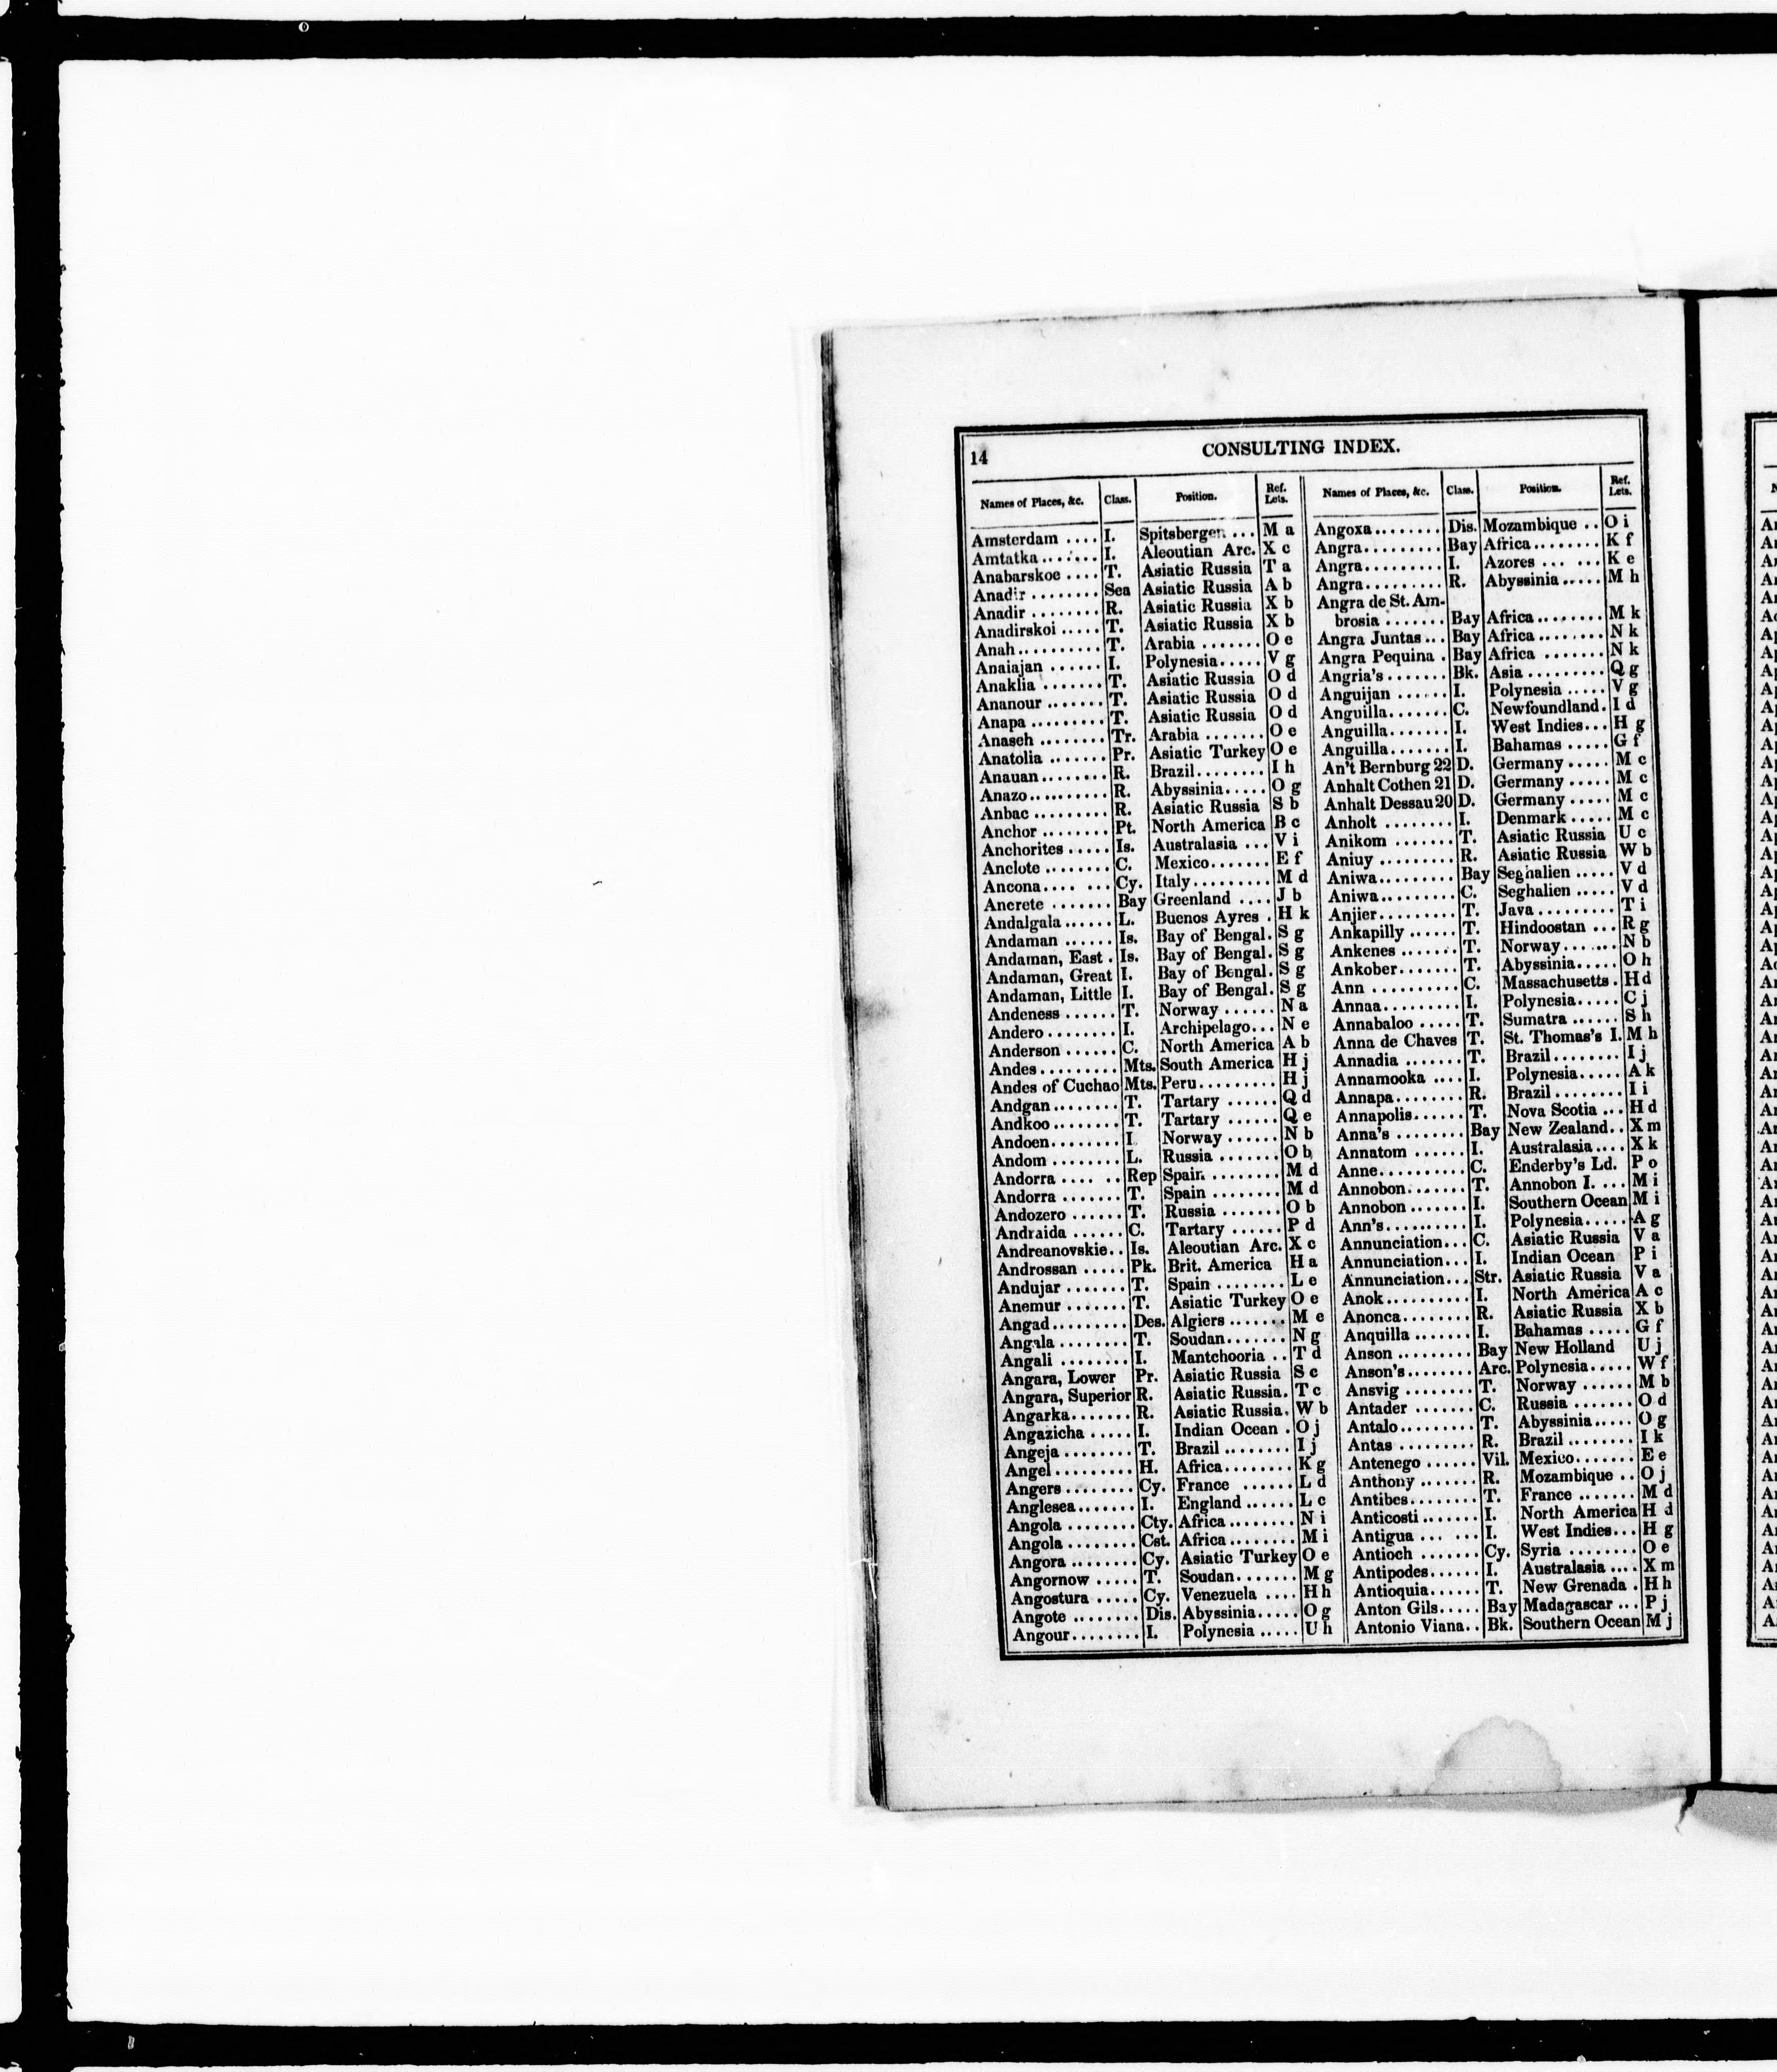 14
CONSULTING INDEX.
Names of Places, &c. Class. Position. Ref. Lets.
Amsterdam .... I. Spitsbergen ... M a
Amtatka ....... I. Aleoutian Arc. X c
Anabarskoe .... T. Asiatic Russia T a
Anadir ........ Sea Asiatic Russia A b
Anadir ........ R. Asiatic Russia X b
Anadirskoi ..... T. Asiatic Russia X b
Anah .......... T. Arabia ....... O e
Anaiajan ...... I. Polynesia..... V g
Anaklia ....... T. Asiatic Russia O d
Ananour ....... T. Asiatic Russia O d
Anapa ......... T. Asiatic Russia O d
Anaseh ........ Tr. Arabia ....... O e
Anatolia ....... Pr. Asiatic Turkey O e
Anauan ........ R. Brazil........ I h
Anazo.......... R. Abyssinia..... O g
Anbac ......... R. Asiatic Russia S b
Anchor ........ Pt. North America B c
Anchorites ..... Is. Australasia ... V i
Anclote ........ C. Mexico....... E f
Ancona.... ... Cy. Italy......... M d
Ancrete ....... Bay Greenland .... J b
Andalgala ...... L. Buenos Ayres . H k
Andaman ...... Is. Bay of Bengal. S g
Andaman, East . Is. Bay of Bengal. S g
Andaman, Great I. Bay of Bengal. S g
Andaman, Little I. Bay of Bengal. S g
Andeness ...... T. Norway ...... N a
Andero ........ I. Archipelago... N e
Anderson ...... C. North America A b
Andes ......... Mts. South America H j
Andes of Cuchao Mts. Peru......... H j
Andgan ........ T. Tartary ...... Q d
Andkoo ........ T. Tartary ...... Q e
Andoen........ I Norway ...... N b
Andom ........ L. Russia ....... O b
Andorra .... .. Rep Spain ......... M d
Andorra ....... T. Spain ........ M d
Andozero ...... T. Russia ....... O b
Andraida ...... C. Tartary ...... P d
Andreanovskie.. Is. Aleoutian Arc. X c
Androssan ..... Pk. Brit. America H a
Andujar ....... T. Spain ........ L e
Anemur ....... T. Asiatic Turkey O e
Angad......... Des. Algiers ....... M e
Angala ........ T. Soudan....... N g
Angali ........ I. Mantchooria .. T d
Angara, Lower Pr. Asiatic Russia S c
Angara, Superior R. Asiatic Russia. T c
Angarka....... R. Asiatic Russia. W b
Angazicha ..... I. Indian Ocean . O j
Angeja ........ T. Brazil ........ I j
Angel ......... H. Africa........ K g
Angers ........ Cy. France ...... L d
Anglesea....... I. England ...... L c
Angola ........ Cty. Africa ........ N i
Angola ........ Cst. Africa ........ M i
Angora ........ Cy. Asiatic Turkey O e
Angornow ..... T. Soudan....... M g
Angostura ..... Cy. Venezuela .... H h
Angote ........ Dis. Abyssinia..... O g
Angour........ I. Polynesia ..... U h
Names of Places, &c. Class. Position. Ref. Lets.
Angoxa........ Dis. Mozambique .. O i
Angra......... Bay Africa........ K f
Angra......... I. Azores ... ... K e
Angra......... R. Abyssinia ..... M h
Angra de St. Am-
brosia ....... Bay Africa........ M k
Angra Juntas... Bay Africa........ N k
Angra Pequina . Bay Africa ....... N k
Angria's ....... Bk. Asia ......... Q g
Anguijan ...... I. Polynesia ..... V g
Anguilla....... C. Newfoundland. I d
Anguilla....... I. West Indies... H g
Anguilla....... I. Bahamas ..... G f
An't Bernburg 22 D. Germany ..... M c
Anhalt Cothen 21 D. Germany ..... M c
Anhalt Dessau 20 D. Germany ..... M c
Anholt ........ I. Denmark ..... M c
Anikom ....... T. Asiatic Russia U c
Aniuy ......... R. Asiatic Russia W b
Aniwa......... Bay Seghalien ..... V d
Aniwa......... C. Seghalien ..... V d
Anjier......... T. Java ......... T i
Ankapilly ...... T. Hindoostan ... R g
Ankenes ....... T. Norway....... N b
Ankober....... T. Abyssinia..... O h
Ann .......... C. Massachusetts . H d
Annaa......... I. Polynesia..... C j
Annabaloo ..... T. Sumatra ...... S h
Anna de Chaves T. St. Thomas's I. M h
Annadia ....... T. Brazil........ I j
Annamooka .... I. Polynesia..... A k
Annapa........ R. Brazil ........ I i
Annapolis...... T. Nova Scotia ... H d
Anna's ........ Bay New Zealand.. X m
Annatom ...... I. Australasia.... X k
Anne.......... C. Enderby's Ld. P o
Annobon....... T. Annobon I. ... M i
Annobon ....... I. Southern Ocean M i
Ann's.......... I. Polynesia..... A g
Annunciation... C. Asiatic Russia V a
Annunciation... I. Indian Ocean P i
Annunciation... Str. Asiatic Russia V a
Anok.......... I. North America A c
Anonca........ R. Asiatic Russia X b
Anquilla ....... I. Bahamas ..... G f
Anson ......... Bay New Holland U j
Anson's........ Arc. Polynesia..... W f
Ansvig ........ T. Norway ...... M b
Antader ....... C. Russia ....... O d
Antalo......... T. Abyssinia..... O g
Antas ......... R. Brazil ........ I k
Antenego ...... Vil. Mexico....... E e
Anthony ....... R. Mozambique .. O j
Antibes........ T. France ....... M d
Anticosti ....... I. North America H d
Antigua ... ... I. West Indies... H g
Antioch ....... Cy. Syria ........ O e
Antipodes...... I. Australasia .... X m
Antioquia...... T. New Grenada . H h
Anton Gils..... Bay Madagascar ... P j
Antonio Viana.. Bk. Southern Ocean M j